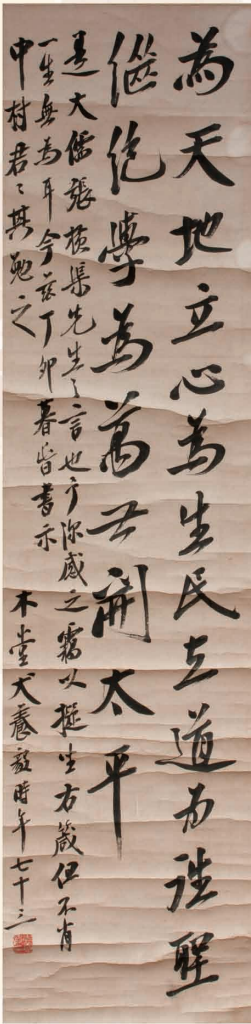 為天地立心為生民立道為往聖
繼絕學為萬世開太平
是大儒張橫渠先生之言也予深感之竊以擬坐右箴但不肖
一生無為耳今茲丁卯暮皆書示
中村君々其勉之
木堂犬養毅時年七十三